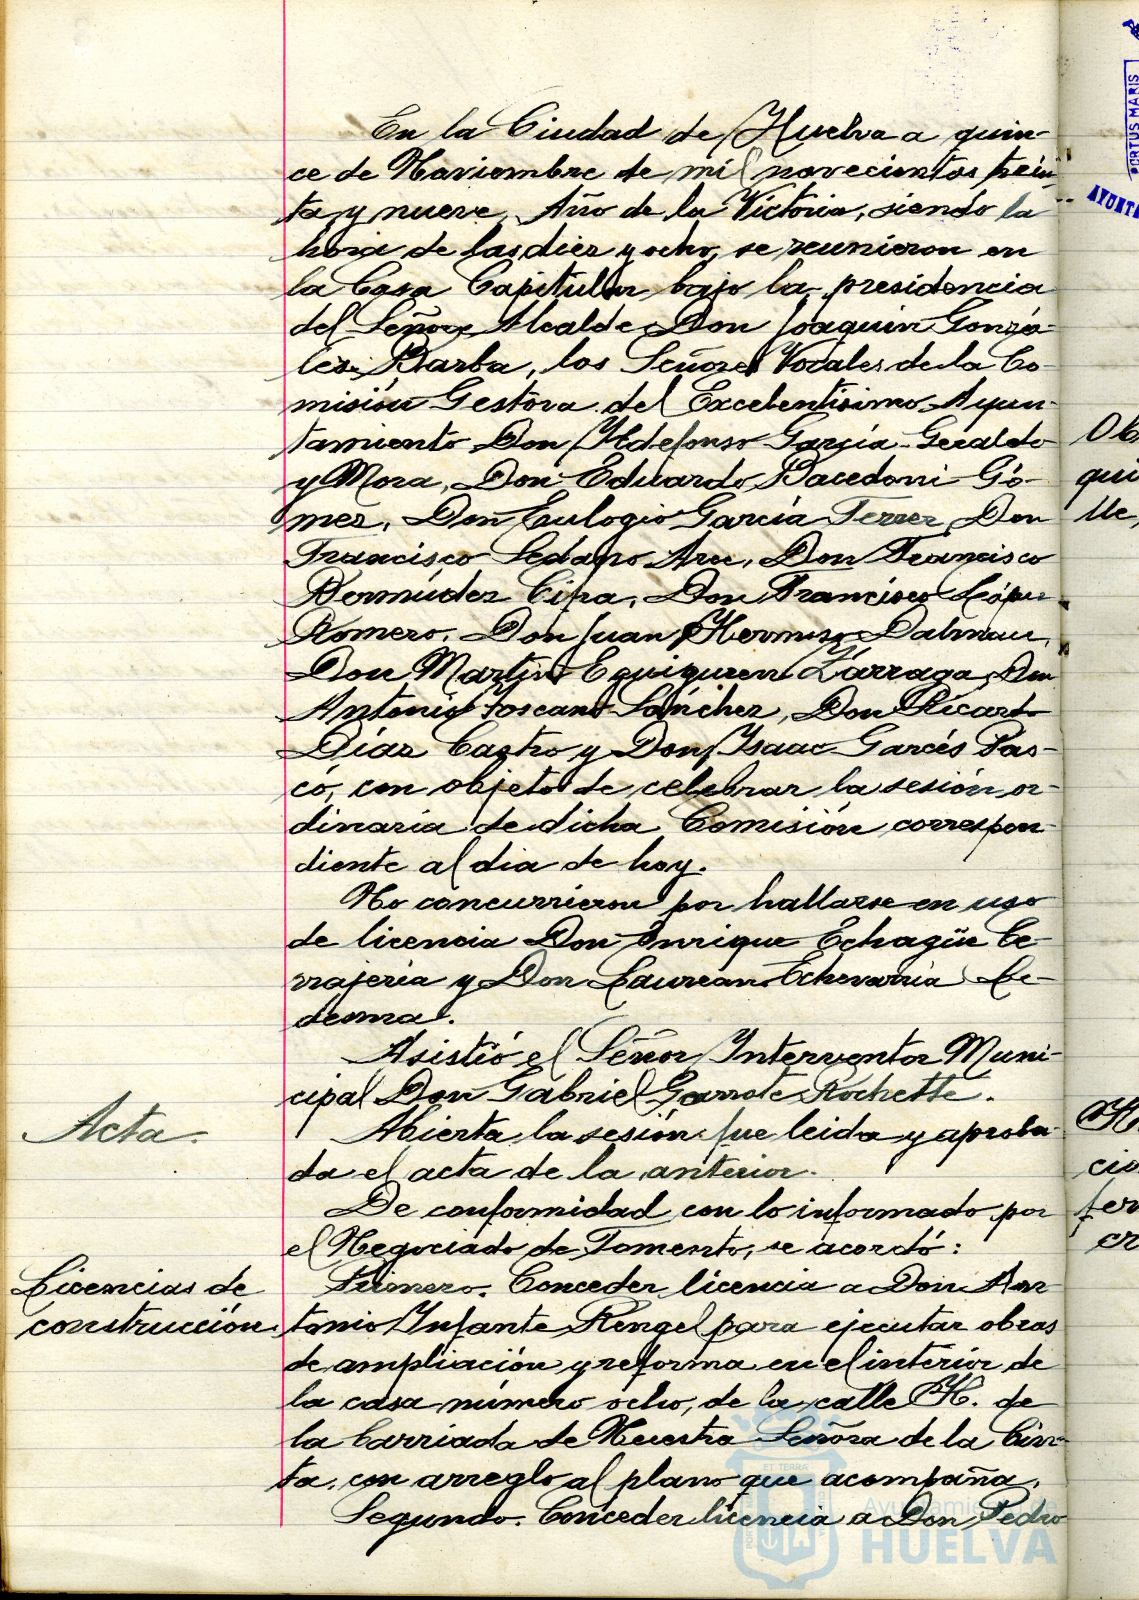 En la Ciudad de Huelva a quin-
ce de Noviembre de mil novecientos trein-
ta y nueve, Año de la Victoria, siendo la
hora de las diez y ocho, se reunieron en
la Casa Capitular bajo la presidencia
del Señor Alcalde Don Joaquin Gonzá-
lez Barba, los Señores Vocales de la Co-
misión Gestora del Excelentísimo Ayun-
tamiento Don Ildefonso García-Geraldo
y Mora, Don Eduardo Bacedoni Gó-
mez, Don Eulogio García Ferrer, Don
Francisco Sedano Arce, Don Francisco
Bermúdez Cipa, Don Francisco López
Romero, Don Juan Hermoso Dalmau,
Don Martín Eguiguren Zárraga, Don
Antonio Toscano Sánchez, Don Ricardo
Díaz Castro y Don Isaac Garcés Pas-
có, con objeto de celebrar la sesión or-
dinaria de dicha Comisión correspon-
diente al dia de hoy.
No concurrieron por hallarse en uso
de licencia Don Enrique Echagüe Ce-
rrajería y Don Laureano Echevarría Le-
desma.
Asistió el Señor Interventor Muni-
cipal Don Gabriel Garrote Rochette.
Acta.
Abierta la sesión fue leida y aproba-
da el acta de la anterior.
De conformidad con lo informado por
el Negociado de Fomento, se acordó:
Licencias de
construcción.
Primero. Conceder licencia a Don An-
tonio Infante Rengel para ejecutar obras
de ampliación y reforma en el interior de
la casa número ocho, de la calle H. de
la barriada de Nuestra Señora de la Cin-
ta, con arreglo al plano que acompaña.
Segundo. Conceder licencia a Don Pedro
PORTUS MARIS
AYUNTA
Ob
qui
lle,
cio
fer
cr
ET TERRA
Ayuntamiento de
HUELVA